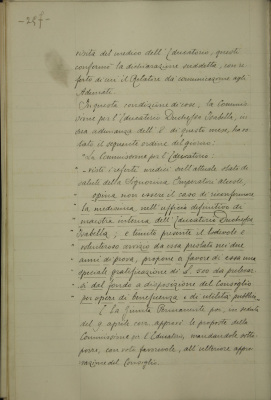 - 257 -
visita del medico dell'Educatorio, questi
confermò la dichiarazione suddetta, con re-
ferto di cui il Relatore dà comunicazione agli
Adunati.
In questa condizione di cose, la Commis-
sione per l'Educatorio Duchessa Isabella, in
sua adunanza dell' 8 di questo mese, ha vo-
tato il seguente ordine del giorno:
"La Commissione per l'Educatorio
" visti i referti medici sull'attuale stato di
salute della Signorina
" opina non essere il caso di riconfermare
" la medesima nell'ufficio definitivo di
" maestra interna dell'Educatorio Duchessa
" Isabella; e tenuto presente il lodevole e
" volenteroso servizio da essa prestato nei due
" anni di prova, propone a favore di essa una
" speciale gratificazione di L. 500 da prelevar-
" si dal fondo a disposizione del Consiglio
" per opere di beneficenza e di utilità pubblica."
E la Giunta Permanente poi, in seduta
del 9 aprile corr. approvò le proposte della
Commissione per l'Educatorio, mandandole sotto-
porre, con voto favorevole, all'ulteriore appro-
vazione del Consiglio.